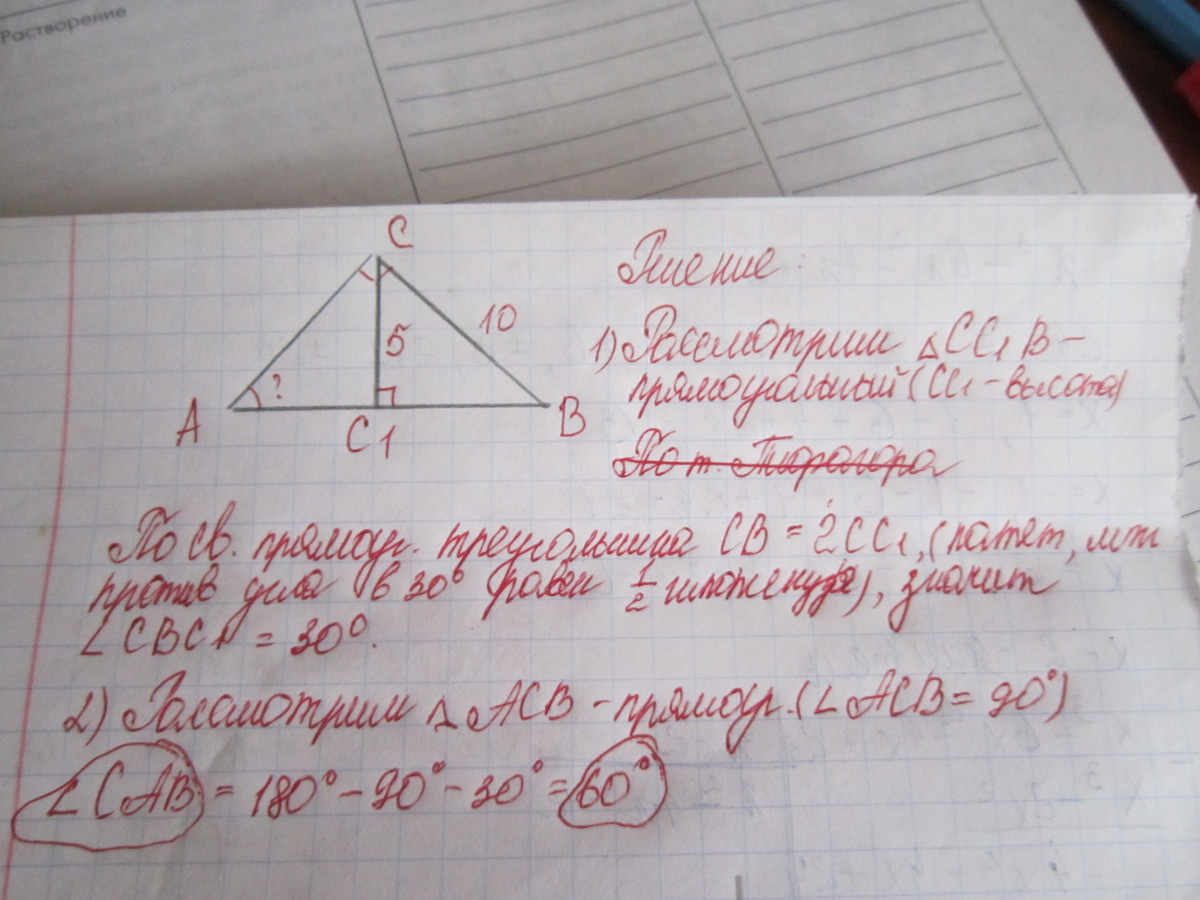 Растворение
C
5
10
?
A
C1
B
Решение:
1) Рассмотрим △CC1B –
прямоугольный (CC1 – высота)
По т. Пифагора
По св. прямоуг. треугольника CB = 2CC1, (катет, леж.
против угла в 30° равен 1/2 гипотенузы), значит
∠CBC1 = 30°.
2) Рассмотрим △ACB – прямоуг. (∠ACB = 90°)
∠CAB = 180° – 90° – 30° = 60°